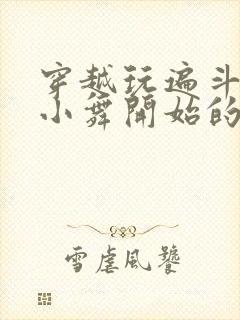 穿越玩遍斗
小舞開始的
雪虐風饕